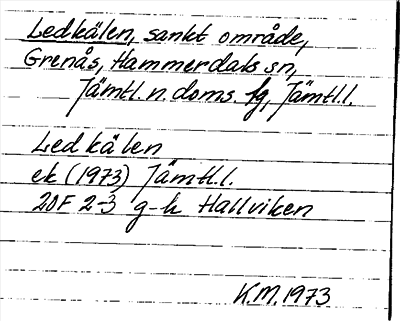 Ledkälen, sankt område,
Grenås, Hammerdals sn,
Jämtl. n. doms. fg, Jämtl. l.
Ledkälen
ek (1973) Jämtl. l.
20F 2-3 g-h Hallviken
K.M. 1973